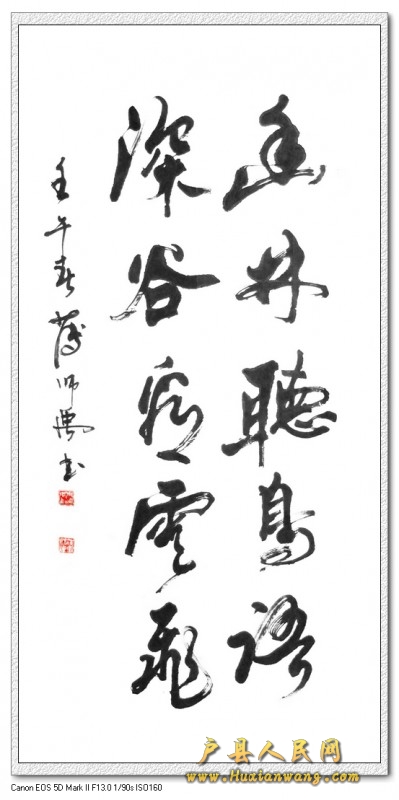 幽林聽鳥語
深谷看雲飛
壬午春 書
户县人民网
www.Huxianwang.com
Canon EOS 5D Mark II F13.0 1/90s ISO160